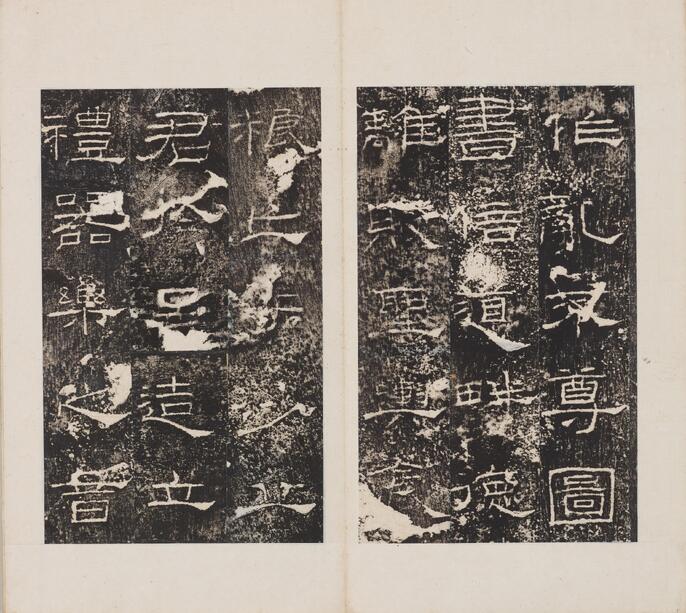 作亂不尊圖
書倍道畔德
離敗聖輿食
粮亡于沙丘
君於是造立
禮器樂之音